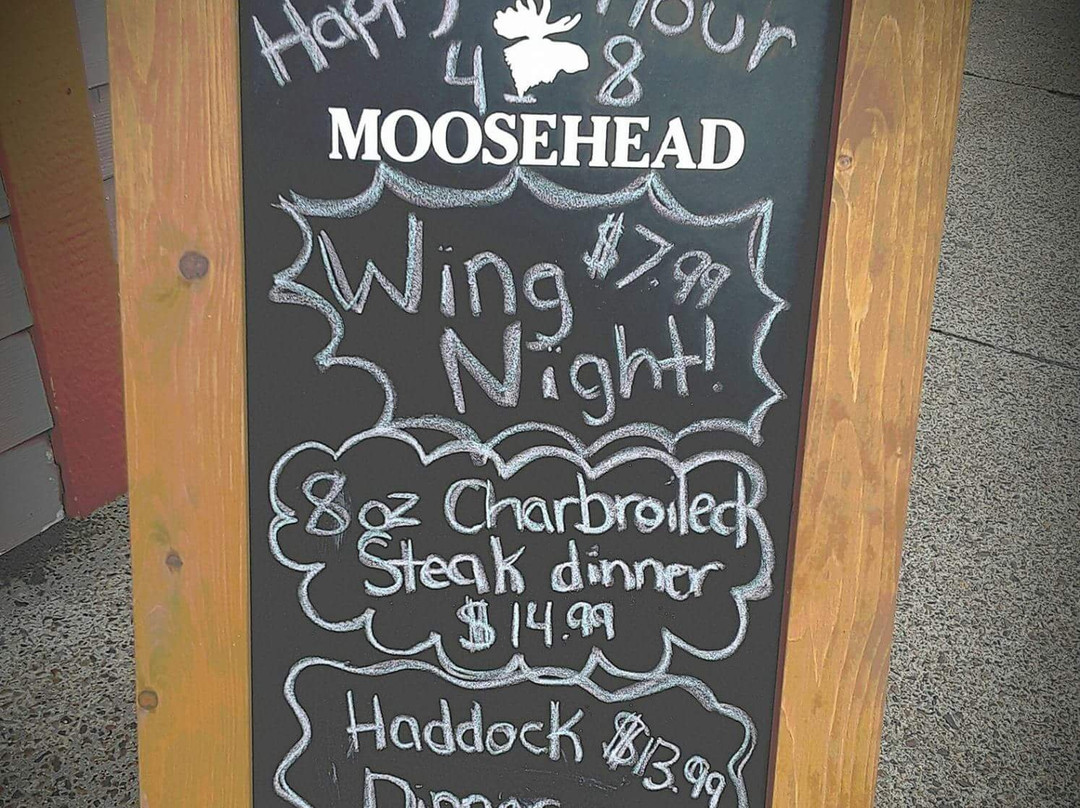 Happy Hour
4 8
MOOSEHEAD
Wing $7.99
Night!
8 oz Charbroiled
Steak dinner
$14.99
Haddock $13.99
Dinner